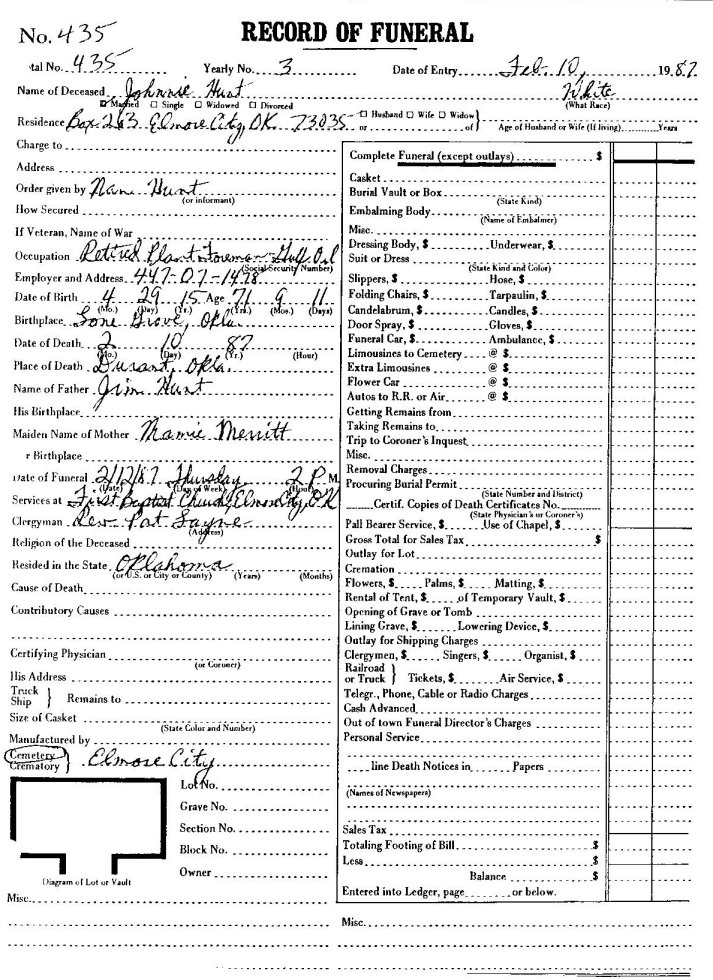 No. 435 RECORD OF FUNERAL
tal No. 435 Yearly No. 3 Date of Entry Feb. 10, 1987
Name of Deceased Johnnie Hunt White
Married Single Widowed Divorced (What Race)
Residence Box 263 Elmore City, OK 73035 or Husband Wife Widow of } Age of Husband or Wife (If living) Years
Charge to
Address
Order given by Nan Hunt
(or informant)
How Secured
If Veteran, Name of War
Occupation Retired Plant Foreman - Gulf Oil
(Social Security Number)
Employer and Address 447-07-1478
Date of Birth 4 29 15 Age 71 9 11
(Mo.) (Day) (Yr.) (Yrs.) (Mos.) (Days)
Birthplace Lone Grove, Okla.
Date of Death 2 10 87
(Mo.) (Day) (Yr.) (Hour)
Place of Death Durant, Okla.
Name of Father Jim Hunt
His Birthplace
Maiden Name of Mother Mamie Merritt
r Birthplace
Date of Funeral 2/12/87 Thursday 2 P.M.
(Date) (Day of Week) (Hour)
Services at First Baptist Church, Elmore City, OK
Clergyman Rev. Pat
(Address)
Religion of the Deceased
Resided in the State Oklahoma
(or U.S. or City or County) (Years) (Months)
Cause of Death
Contributory Causes
Certifying Physician
(or Coroner)
His Address
Truck
Ship } Remains to
Size of Casket
(State Color and Number)
Manufactured by
Cemetery
Crematory } Elmore City
Lot No.
Grave No.
Section No.
Block No.
Owner
Diagram of Lot or Vault
Misc.
Complete Funeral (except outlays) $
Casket
Burial Vault or Box
(State Kind)
Embalming Body
(Name of Embalmer)
Misc.
Dressing Body, $ Underwear, $
Suit or Dress
(State Kind and Color)
Slippers, $ Hose, $
Folding Chairs, $ Tarpaulin, $
Candelabrum, $ Candles, $
Door Spray, $ Gloves, $
Funeral Car, $ Ambulance, $
Limousines to Cemetery @ $
Extra Limousines @ $
Flower Car @ $
Autos to R.R. or Air @ $
Getting Remains from
Taking Remains to
Trip to Coroner's Inquest
Misc.
Removal Charges
Procuring Burial Permit
(State Number and District)
Certif. Copies of Death Certificates No.
(State Physician's or Coroner's)
Pall Bearer Service, $ Use of Chapel, $
Gross Total for Sales Tax $
Outlay for Lot
Cremation
Flowers, $ Palms, $ Matting, $
Rental of Tent, $ of Temporary Vault, $
Opening of Grave or Tomb
Lining Grave, $ Lowering Device, $
Outlay for Shipping Charges
Clergymen, $ Singers, $ Organist, $
Railroad
or Truck } Tickets, $ Air Service, $
Telegr., Phone, Cable or Radio Charges
Cash Advanced
Out of town Funeral Director's Charges
Personal Service
line Death Notices in Papers
(Names of Newspapers)
Sales Tax
Totaling Footing of Bill $
Less $
Balance $
Entered into Ledger, page or below.
Misc.